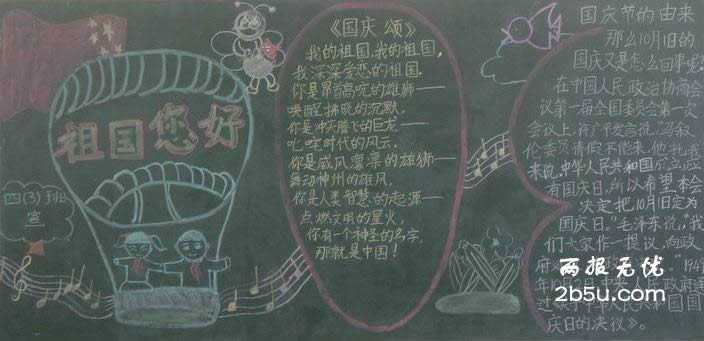 祖国您好
四(3)班
宣
《国庆 颂》
我的祖国,我的祖国,
我深深爱恋的祖国.
你是昂首高吭的雄狮——
唤醒拂晓的沉默,
你是冲天腾飞的巨龙——
叱咤时代的风云,
你是威风凛凛的雄狮——
舞动神州的雄风,
你是人类智慧的起源——
点燃文明的星火,
你有一个神圣的名字,
那就是中国!
国庆节的由来
那么10月1日的
国庆又是怎么回事呢?
在中国人民政治协商会
议第一届全国委员会第一次
会议上,许广平发言说,马叙
伦委员请假不能来,他托我
来说,中华人民共和国成立应
有国庆日,所以希望本会
决定,把10月1日定为
国庆日。"毛泽东说,"我
们大家作一提议,向政
府
"1949
年10月 中央人民政府通
过 中华人民共和国国
庆日的决议》。
两报无忧
2b5u.com